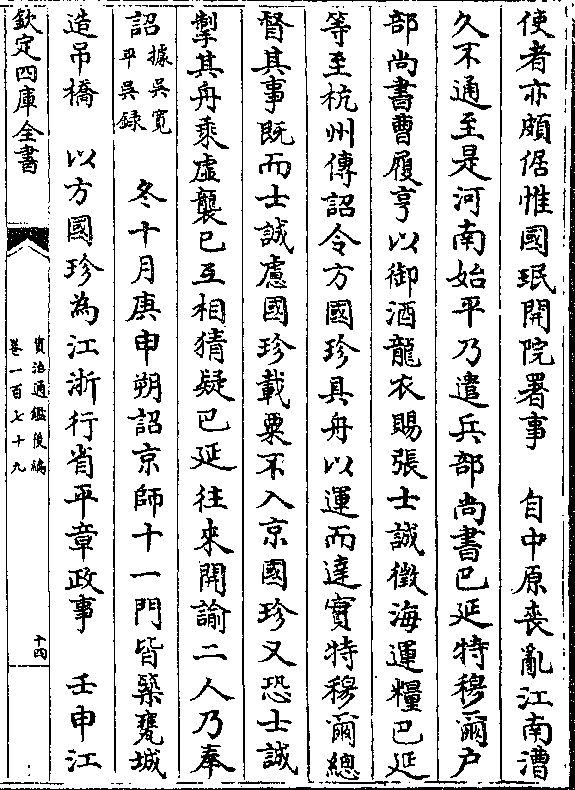 使者亦頗倨惟國珉開院署事　自中原喪亂江南漕
久不通至是河南始平乃遣兵部尚書巴延特穆爾户
部尚書曹履亨以御酒龍衣賜張士誠徴海運糧巴延
等至杭州傳詔令方國珍具舟以運而達實特穆爾總
督其事既而士誠慮國珍載粟不入京國珍又恐士誠
掣其舟乘虛襲已互相猜疑巴延往來開諭二人乃奉
詔據吳寛平吳録　冬十月庚申朔詔京師十一門皆築甕城
造吊橋　以方國珍為江浙行省平章政事　壬申江
欽定四庫全書
資治通鑑後編
卷一百七十九
十四